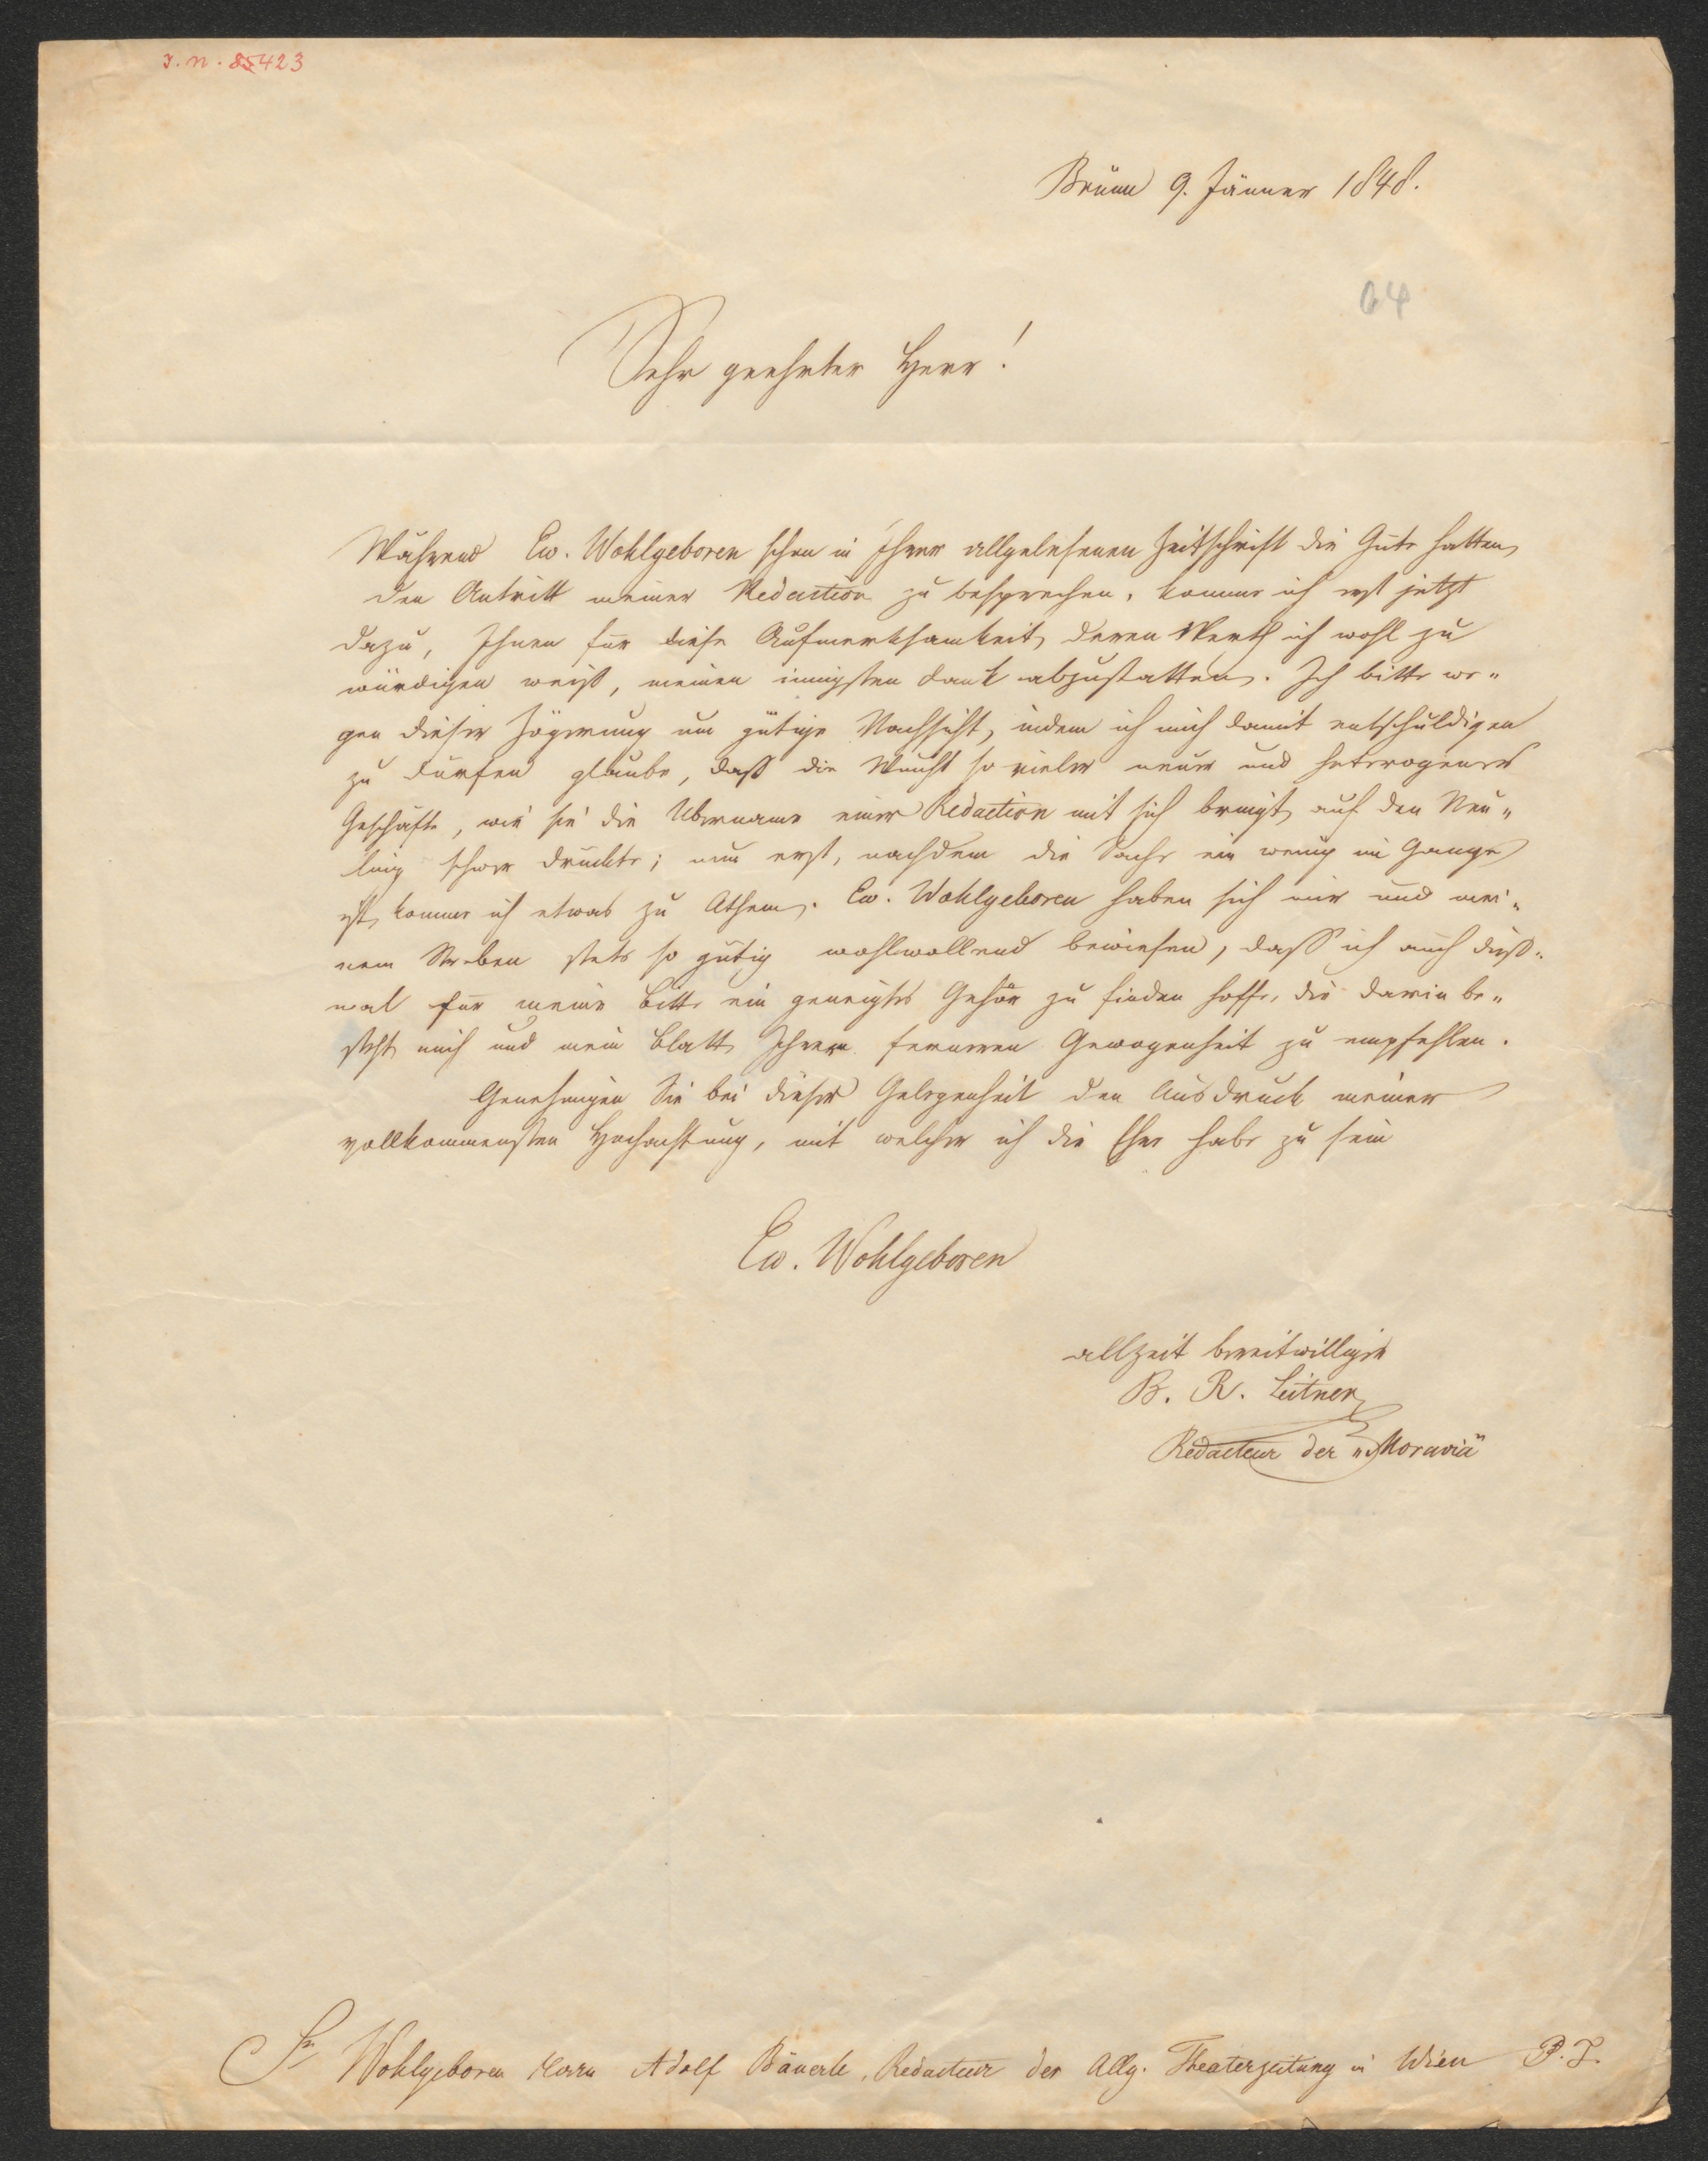 I. N. 85423
Brünn 9. Jänner 1848.
64
Sehr geehrter Herr!
Während Ew. Wohlgeboren schon in Ihrer allgelesenen Zeitschrift die Güte hatten
den Antritt meiner Redaction zu besprechen, komme ich erst jetzt
dazu, Ihnen für diese Aufmerksamkeit, deren Werth ich wohl zu
würdigen weiß, meinen innigsten Dank abzustatten. Ich bitte we„
gen dieser Zögerung um gütige Nachsicht, indem ich mich damit entschuldigen
zu dürfen glaube, daß die Wucht so vieler neuer und heterogener
Geschäfte, wie sie die Übername einer Redaction mit sich bringt, auf den Neu„
ling schwer drückte; nun erst, nachdem die Sache ein wenig im Gange
ist, komme ich etwas zu Athem. Ew. Wohlgeboren haben sich mir und mei„
nem Streben stets so gütig wohlwollend bewiesen, daß ich auch dieß„
mal für meine Bitte ein geneigtes Gehör zu finden hoffe, die darin be„
steht, mich und mein Blatt Ihrem ferneren Gewogenheit zu empfehlen.
Genehmigen Sie bei dieser Gelegenheit den Ausdruck meiner
vollkommensten Hochachtung, mit welcher ich die Ehre habe zu sein
Ew. Wohlgeboren
allzeit bereitwilliger
B. R. Leitner
Redacteur der „Moravia“
Sr Wohlgeboren Herrn Adolf Bäuerle, Redacteur der Allg. Theaterzeitung in Wien P. T.